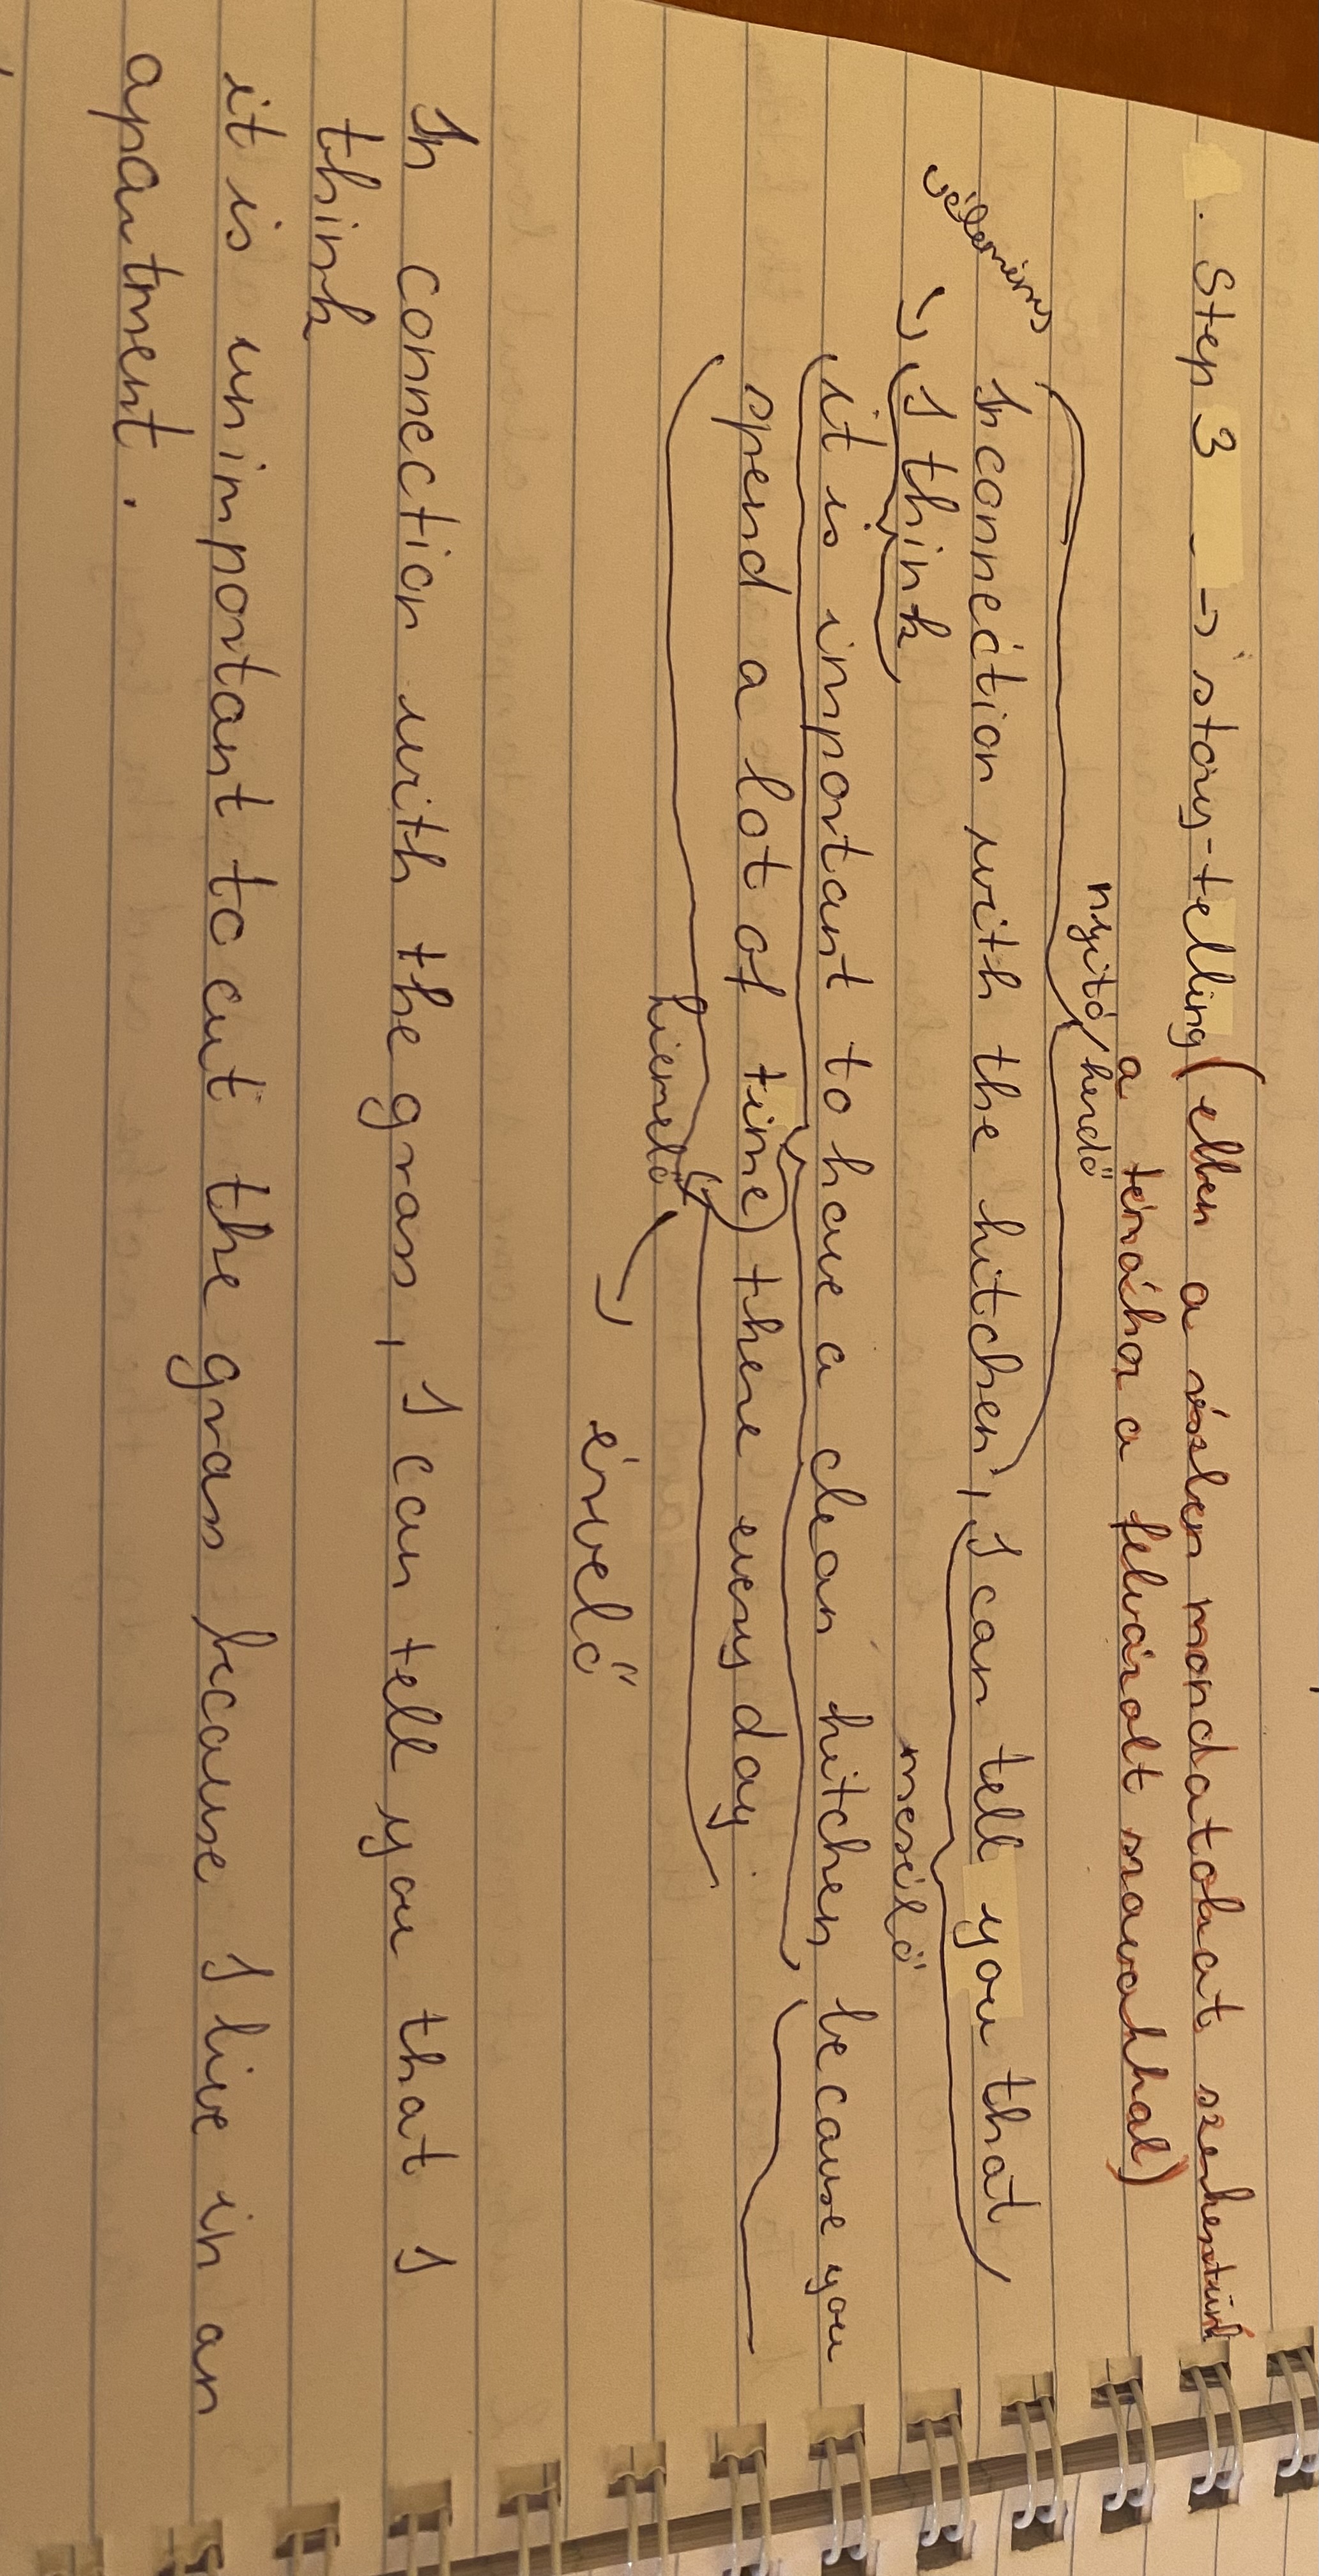 . Step 3 -> story-telling (ebben a részben mondatokat szerkesztünk
a témához a felvázolt szavakkal)
nyitó/kezdő
In connection with the kitchen, I can tell you that
véleményes
-> I think
mesélő
it is important to have a clean kitchen because you
spend a lot of time there every day
kiemelő ->
érvelő
In connection with the grass, I can tell you that I
think
it is unimportant to cut the grass because I live in an
apartment.